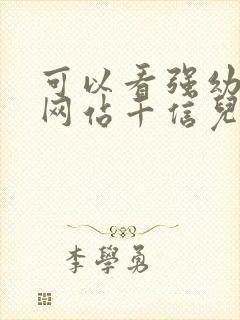 可以看强幼
网佔十信兒
李學勇